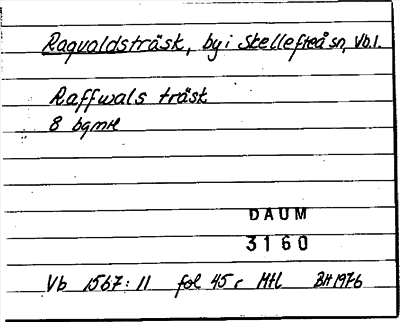 Ragvaldsträsk, by i Skellefteå sn, Vb.l.
Raffwals träsk
8 bgmtl
DAUM
3160
Vb 1567:11 fol 45 r Mtl BH 1976